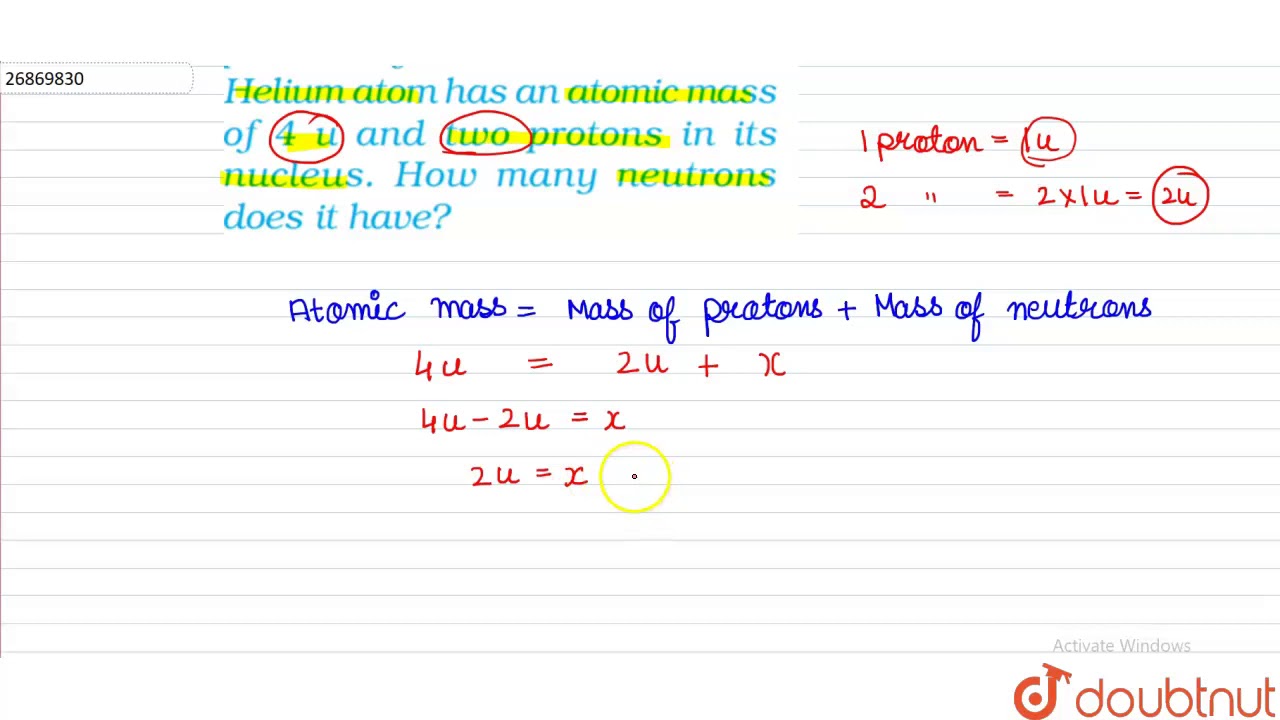 26869830
Helium atom has an atomic mass
of 4 u and two protons in its
nucleus. How many neutrons
does it have?
1 proton = 1u
2 " = 2×1u = 2u
Atomic mass = Mass of protons + Mass of neutrons
4u = 2u + x
4u - 2u = x
2u = x
Activate Windows
doubtnut